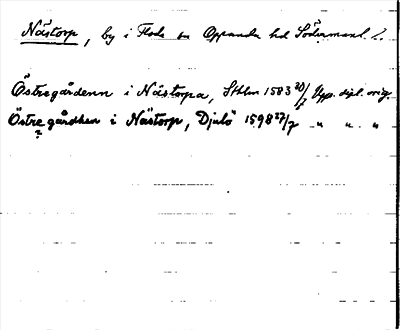 Nästorp, by i Floda sn Oppunda hd Södermanl. l.
Östregårdenn i Nästorpa, Sthlm 1583 20/7 Upp. dipl. orig.
Östre gårdhen i Nästorp, Djulö 1598 27/7 " " "
?